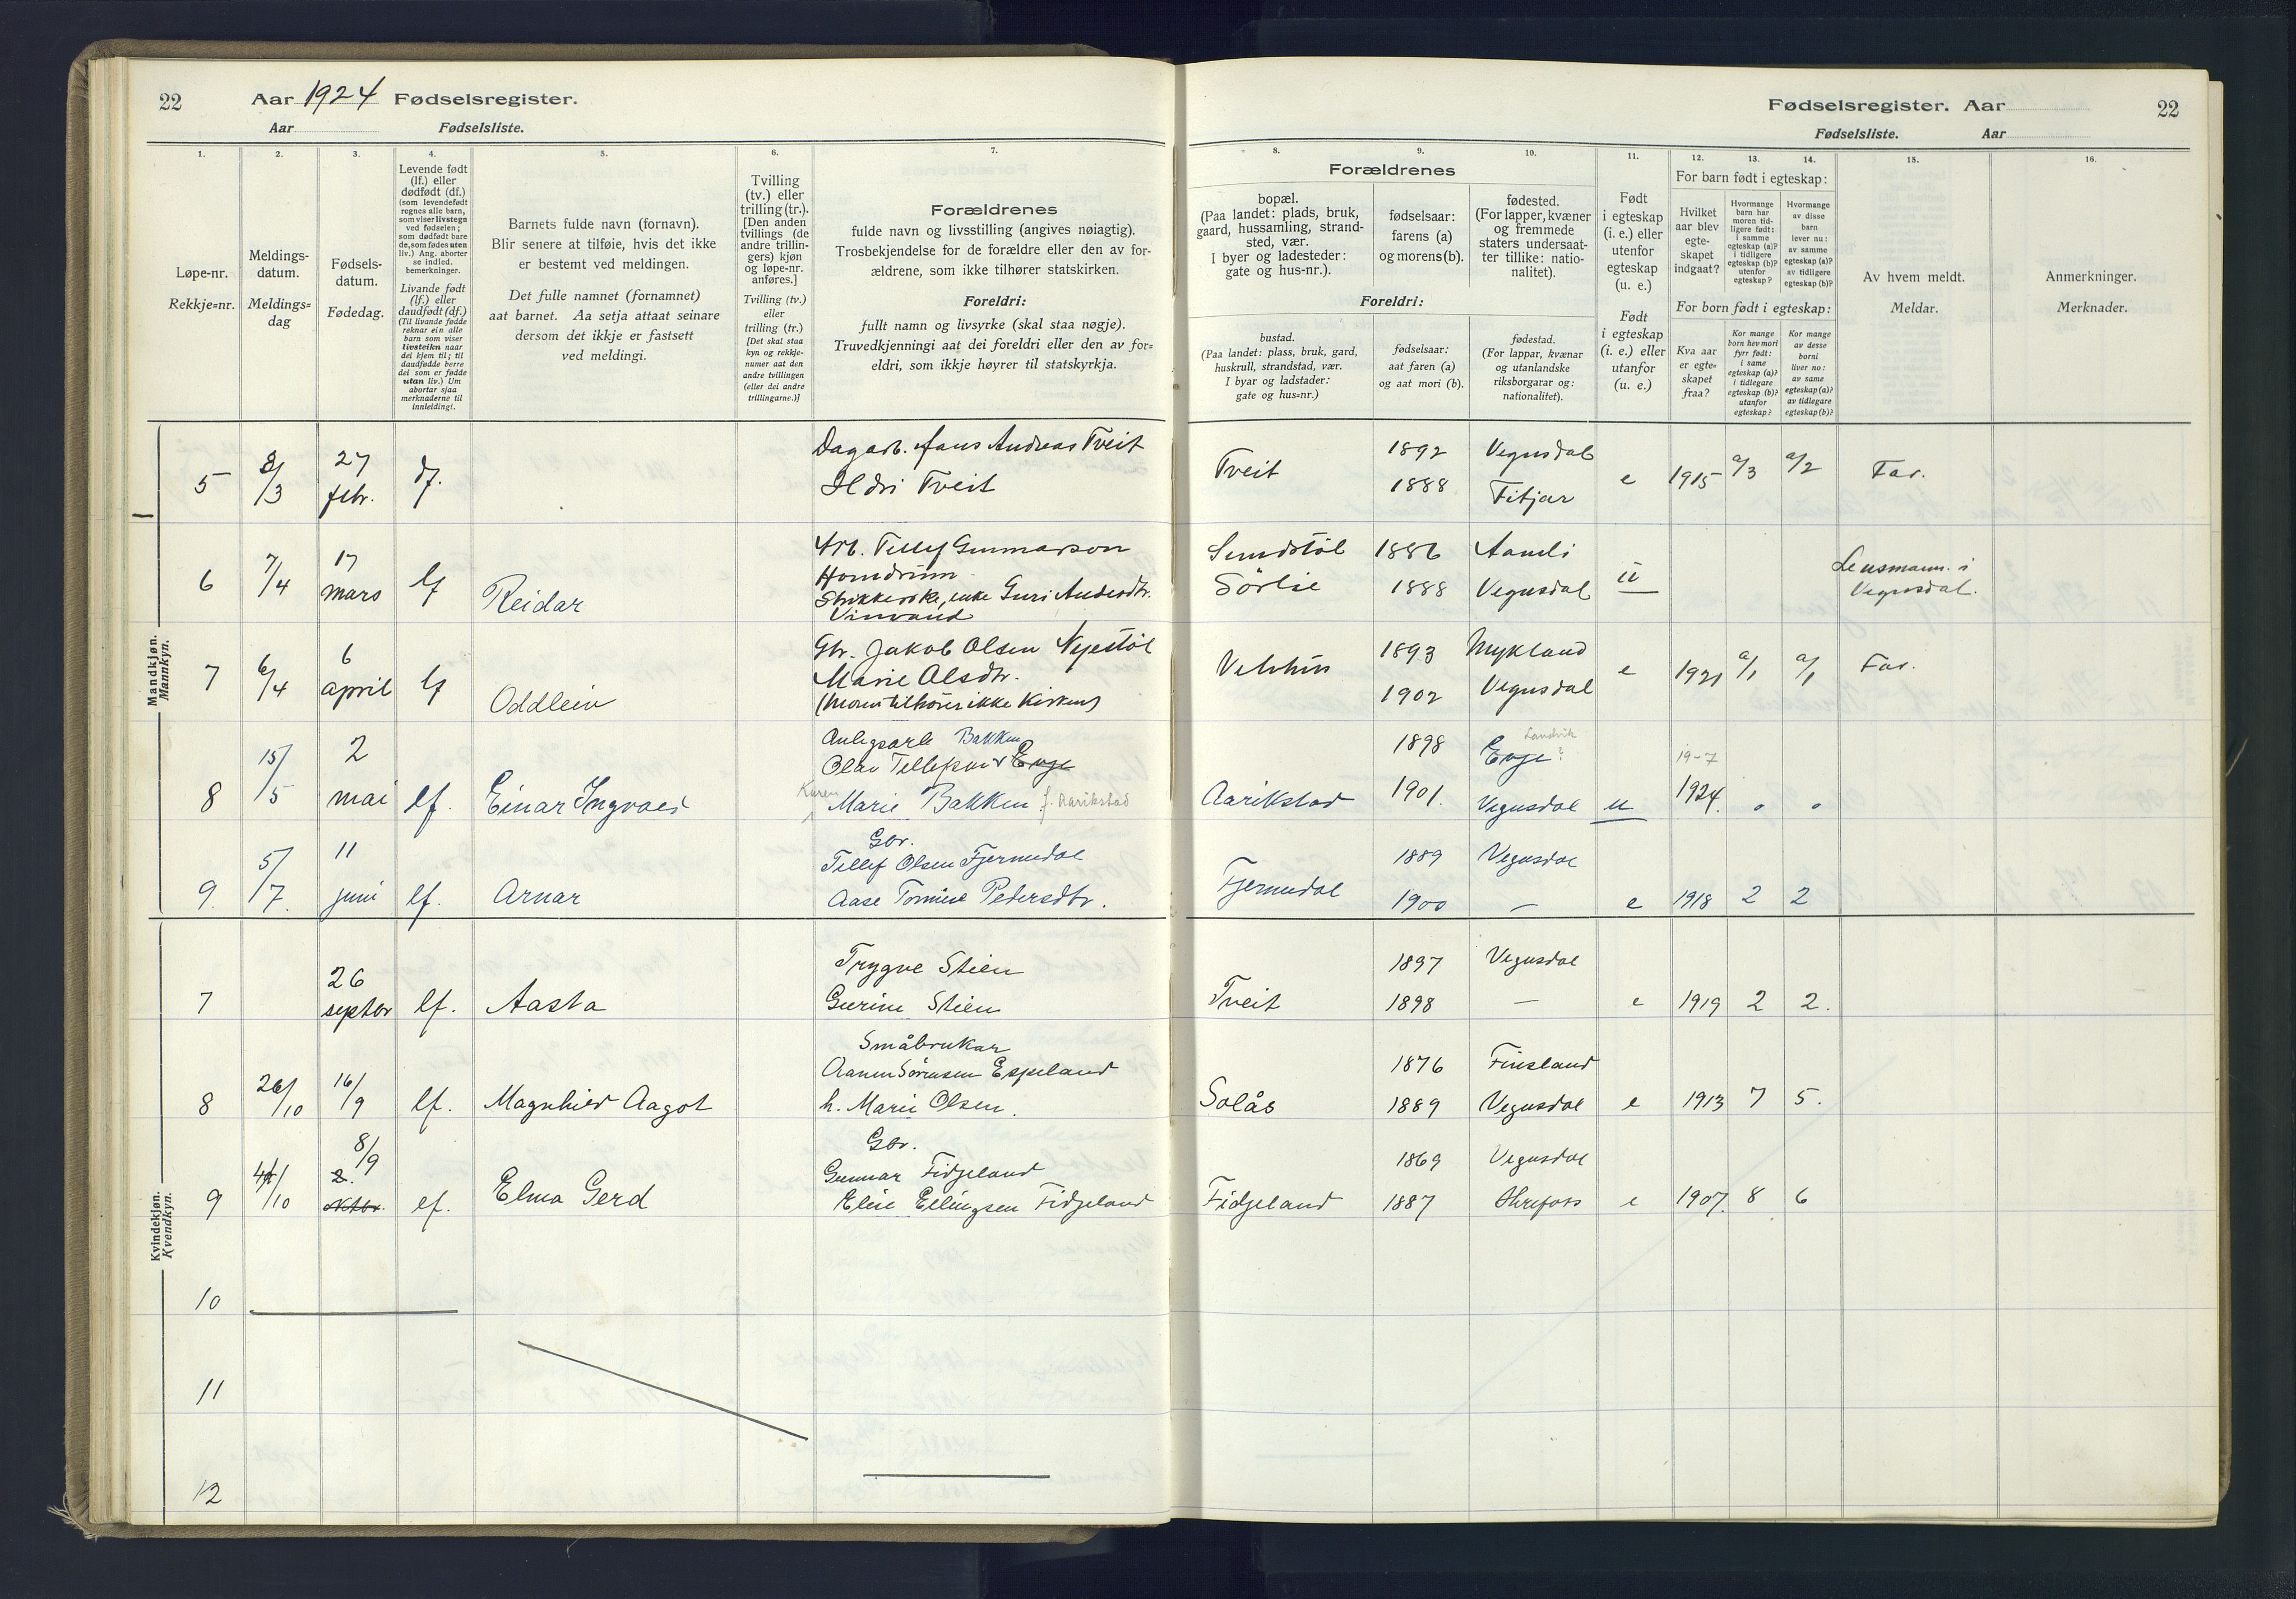 22
Aar 1924 Fødselsregister.
Aar Fødselsliste.
1.
2.
3.
4.
5.
6.
7.
Løpe-nr.
Rekkje=nr.
Meldings-
datum.
Meldings=
dag
Fødsels-
datum.
Fødedag.
Levende født
(lf.) eller
dødfødt (df.)
(som levendefødt
regnes alle barn,
som viser livstegn
ved fødselen;
som dødfødt bare
de, som fødes uten
liv.) Ang. aborter
se indled.
bemerkninger.
Livande født
(lf.) eller
daudfødt (df.)
(Til livande fødde
reknar ein alle
barn som viser
livsteikn naar
dei kjem til; til
daudfødde berre
dei som er fødde
utan liv.) Um
abortar sjaa
merknaderne til
innleidingi.
Barnets fulde navn (fornavn).
Blir senere at tilføie, hvis det ikke
er bestemt ved meldingen.
Det fulle namnet (fornamnet)
aat barnet. Aa setja attaat seinare
dersom det ikkje er fastsett
ved meldingi.
Tvilling
(tv.) eller
trilling (tr.).
[Den anden
tvillings (de
andre trillin-
gers) kjøn
og løpe-nr.
anføres.]
Tvilling (tv.)
eller
trilling (tr.)
[Det skal staa
kyn og rekkje-
numer aat den
andre tvillingen
(eller dei andre
trillingarne.)]
Forældrenes
fulde navn og livsstilling (angives nøiagtig).
Trosbekjendelse for de forældre eller den av for-
ældrene, som ikke tilhører statskirken.
Foreldri:
fullt namn og livsyrke (skal staa nøgje).
Truvedkjenningi aat dei foreldri eller den av for=
eldri, som ikkje høyrer til statskyrkja.
Mandkjøn.
Mannkyn.
5 8/3 27 febr. df.
Dagarb. Hans Andreas Tveit
Ildri Tveit
6 7/4 17 mars lf Reidar
Arb. Tellef Gunnarson
Homdrum
enke Guri Andersdtr.
Vinvand
7 6/4 6 april lf Oddleiv
Gbr. Jakob Olsen
Marie Olsdtr.
(Moren tilhører ikke Kirken)
8 15/5 2 mai lf. Einar Ingvald
Bakken
Olav Tellefsen Evje
Karen
Marie Bakken f. Aarikstad
9. 5/7. 11 juni lf. Arnar
Gbr.
Tellef Olsen Fjermedal
Aase Tomine Pedersdtr.
Kvindekjøn.
Kvendkyn.
7 26 septbr lf. Aasta
Trygve Stien
Gurine Stien
8 26/10 16/9 lf. Magnhild Aagot
Småbrukar
Aanen Sørensen Espeland
h. Marie Olsen.
9 4/10 8/9 2. oktbr. lf. Elma Gerd
Gbr.
Gunnar Fidjeland
Elise Ellingsen Fidjeland
10
11
12
Fødselsregister. Aar
22
Fødselsliste. Aar
8.
9.
10.
11.
12.
13.
14.
15.
16.
Forældrenes
bopæl.
(Paa landet: plads, bruk,
gaard, hussamling, strand-
sted, vær.
I byer og ladesteder:
gate og hus-nr.).
fødselsaar:
farens (a)
og morens (b).
fødested.
(For lapper, kvæner
og fremmede
staters undersaat-
ter tillike: natio-
nalitet).
Foreldri:
bustad.
(Paa landet: plass, bruk, gard,
huskrull, strandstad, vær.
I byar og ladstader:
gate og hus=nr.)
fødselsaar:
aat faren (a)
og aat mori (b).
fødestad.
(For lappar, kvænar
og utanlandske
riksborgarar og:
nationalitet).
Født
i egteskap
(i. e.) eller
utenfor
egteskap
(u. e.)
Født
i egteskap
(i. e.) eller
utanfor
(u. e.)
For barn født i egteskap:
Hvilket
aar blev
egte-
skapet
indgaat?
Hvormange
barn har
moren tid-
ligere født:
i samme
egteskap (a)?
i tidligere
egteskap (b)?
utenfor
egteskap?
Hvormange
av disse
barn
lever nu:
av samme
egteskap (a)?
av tidligere
egteskap (b)?
For born født i egteskap:
Kva aar
er egte=
skapet
fraa?
Kor mange
born hev mori
fyrr født:
i same
egteskap (a)?
i tidlegare
egteskap (b)?
utanfor
egteskap?
Kor mange
av desse
borni
liver no:
av same
egteskap (a)?
av tidlegare
egteskap (b)?
Av hvem meldt.
Meldar.
Anmerkninger.
Merknader.
Tveit 1892 Vegusdal
1888 Fitjar e 1915 a/3 a/2 Far.
Sundstøl 1886 Aamli
Sørlie 1888 Vegusdal u Lensmann i
Vegusdal.
1893 Mykland
1902 Vegusdal e 1921 a/1 a/1 Far.
Landvik
1898 Evje? 19-7
Aarikstad 1901. Vegusdal u 1924. 0 0
1889 Vegusdal
Fjermedal 1900 — e 1918 2 2
1897 Vegusdal
Tveit 1898 — e 1919 2 2.
1876 Finsland
Solås 1889 Vegusdal e 1913 7 5.
1869 Vegusdal
Fidjeland 1887 e 1907. 8 6